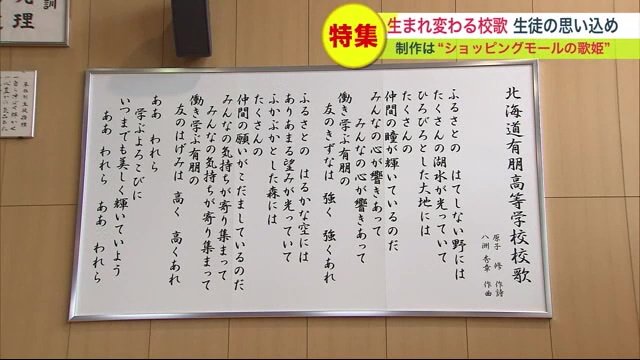 特集
生まれ変わる校歌 生徒の思い込め
制作は“ショッピングモールの歌姫”
訓
北海道有朋高等学校校歌
原子 修 作詩
八洲秀章 作曲
ふるさとの はてしない野には
たくさんの湖水が光っていて
ひろびろとした大地には
たくさんの
仲間の瞳が輝いているのだ
みんなの心が響きあって
みんなの心が響きあって
働き学ぶ有朋の
友のきずなは 強く 強くあれ
ふるさとの はるかな空には
ありあまる望みが光っていて
ふかぶかとした森には
たくさんの
仲間の願いがこだましているのだ
みんなの気持ちが寄り集まって
みんなの気持ちが寄り集まって
働き学ぶ有朋の
友のはげみは 高く 高くあれ
ああ われら
学ぶよろこびに
いつまでも美しく輝いていよう
ああ われら ああ われら